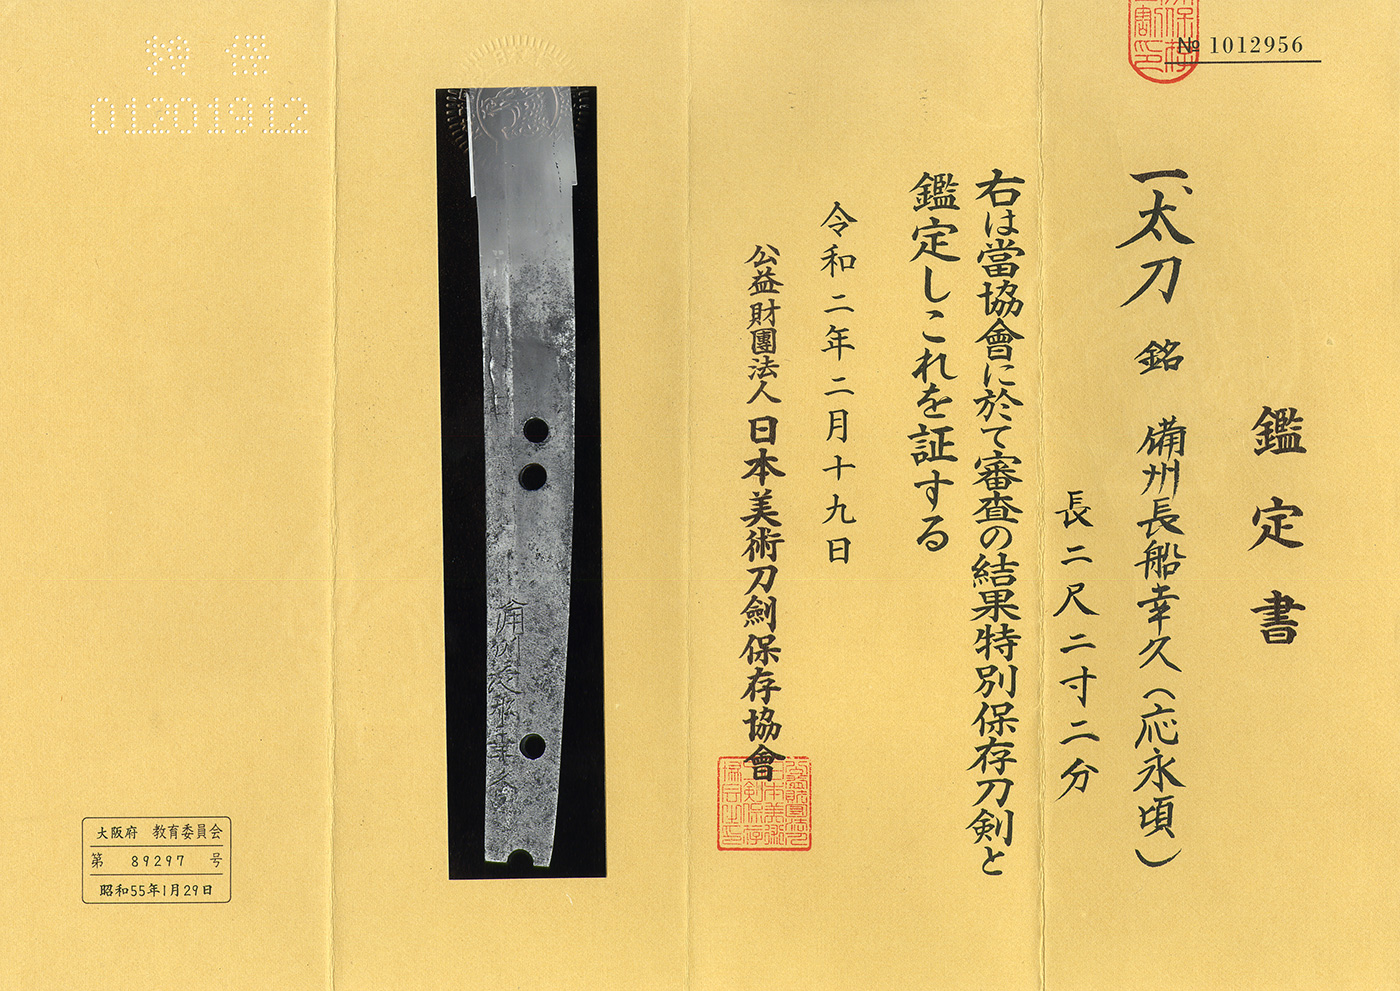 № 1012956
鑑定書
一、太刀 銘 備州長船幸久(応永頃)
長二尺二寸二分
右は當協會に於て審査の結果特別保存刀剣と
鑑定しこれを証する
令和二年二月十九日
公益財團法人 日本美術刀劍保存協會
01201912
大阪府 教育委員会
第 89297 号
昭和55年1月29日